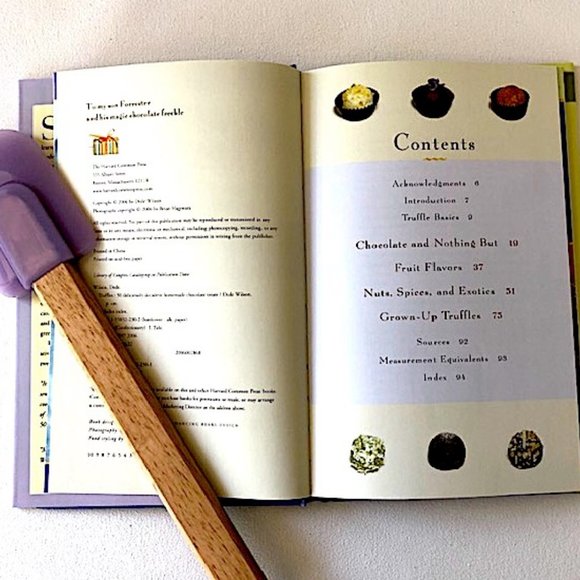 To my son Forrester
and his magic chocolate freckle
The Harvard Common Press
535 Albany Street
Boston, Massachusetts
www.harvardcommonpress.com
Copyright © 2006 by Dede Wilson
Photographs copyright © 2006 by Brian Hagiwara
All rights reserved. No part of this publication may be reproduced or transmitted in any
form or by any means, electronic or mechanical, including photocopying, recording, or any
information storage or retrieval system, without permission in writing from the publisher.
Printed in China
Printed on acid-free paper
Library of Congress Cataloging-in-Publication Data
Wilson, Dede.
Truffles : 50 deliciously decadent homemade chocolate treats / Dede Wilson.
(hardcover : alk. paper)
(Confectionery) I. Title.
available at
Harvard Common Press books
purchase books for premiums or resale, or may arrange
Marketing Director at the address above.
Book design
DANCING BEARS DESIGN
Photography
Food styling by
Contents
Acknowledgments 6
Introduction 7
Truffle Basics 9
Chocolate and Nothing But 19
Fruit Flavors 37
Nuts, Spices, and Exotics 51
Grown-Up Truffles 75
Sources 92
Measurement Equivalents 93
Index 94